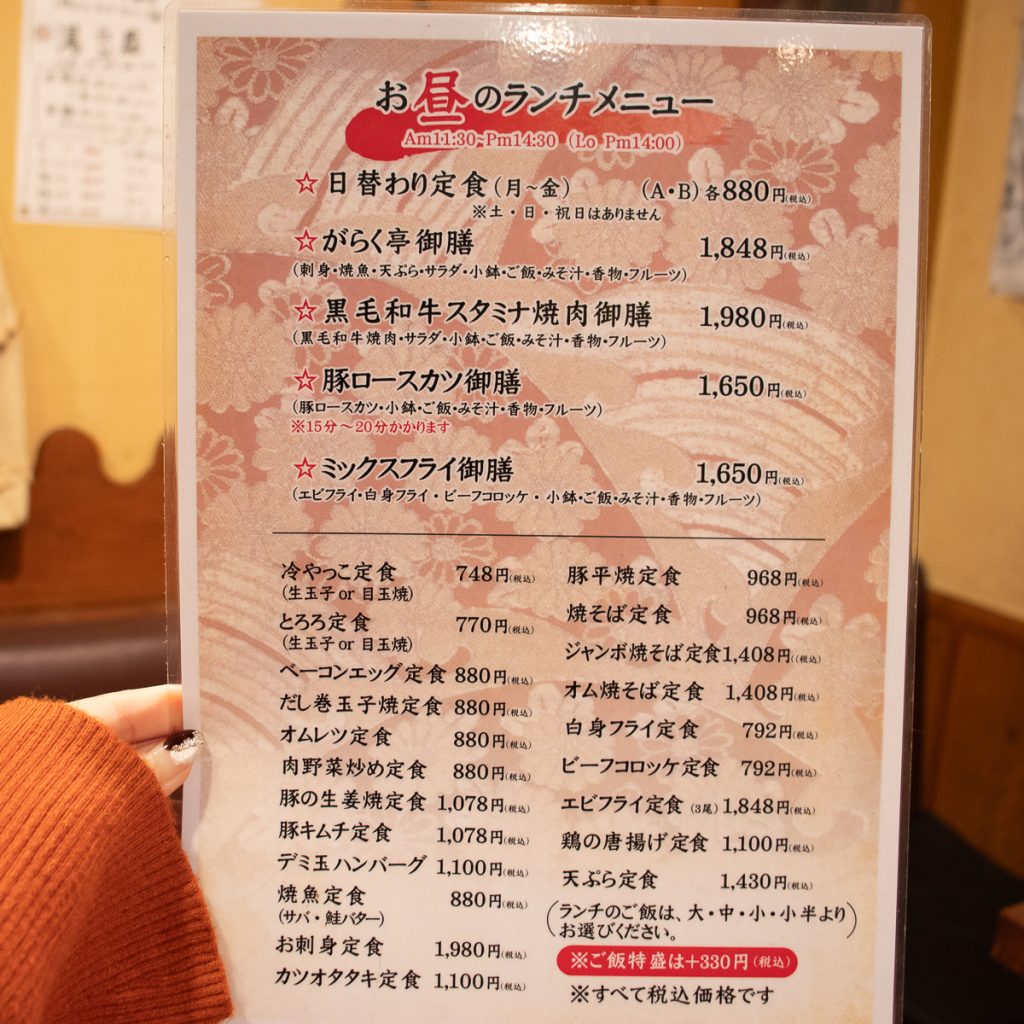 お昼のランチメニュー
Am11:30~Pm14:30 (Lo Pm14:00)
☆日替わり定食(月~金) (A・B)各880円(税込)
※土・日・祝日はありません
☆がらく亭御膳 1,848円(税込)
(刺身・焼魚・天ぷら・サラダ・小鉢・ご飯・みそ汁・香物・フルーツ)
☆黒毛和牛スタミナ焼肉御膳 1,980円(税込)
(黒毛和牛焼肉・サラダ・小鉢・ご飯・みそ汁・香物・フルーツ)
☆豚ロースカツ御膳 1,650円(税込)
(豚ロースカツ・小鉢・ご飯・みそ汁・香物・フルーツ)
※15分~20分かかります
☆ミックスフライ御膳 1,650円(税込)
(エビフライ・白身フライ・ビーフコロッケ・小鉢・ご飯・みそ汁・香物・フルーツ)
冷やっこ定食 748円(税込)
(生玉子or目玉焼)
とろろ定食 770円(税込)
(生玉子or目玉焼)
ベーコンエッグ定食 880円(税込)
だし巻玉子焼定食 880円(税込)
オムレツ定食 880円(税込)
肉野菜炒め定食 880円(税込)
豚の生姜焼定食 1,078円(税込)
豚キムチ定食 1,078円(税込)
デミ玉ハンバーグ 1,100円(税込)
焼魚定食 880円(税込)
(サバ・鮭バター)
お刺身定食 1,980円(税込)
カツオタタキ定食 1,100円(税込)
豚平焼定食 968円(税込)
焼そば定食 968円(税込)
ジャンボ焼そば定食 1,408円((税込)
オム焼そば定食 1,408円(税込)
白身フライ定食 792円(税込)
ビーフコロッケ定食 792円(税込)
エビフライ定食(3尾) 1,848円(税込)
鶏の唐揚げ定食 1,100円(税込)
天ぷら定食 1,430円(税込)
(ランチのご飯は、大・中・小・小半より
お選びください。)
※ご飯特盛は+330円(税込)
※すべて税込価格です